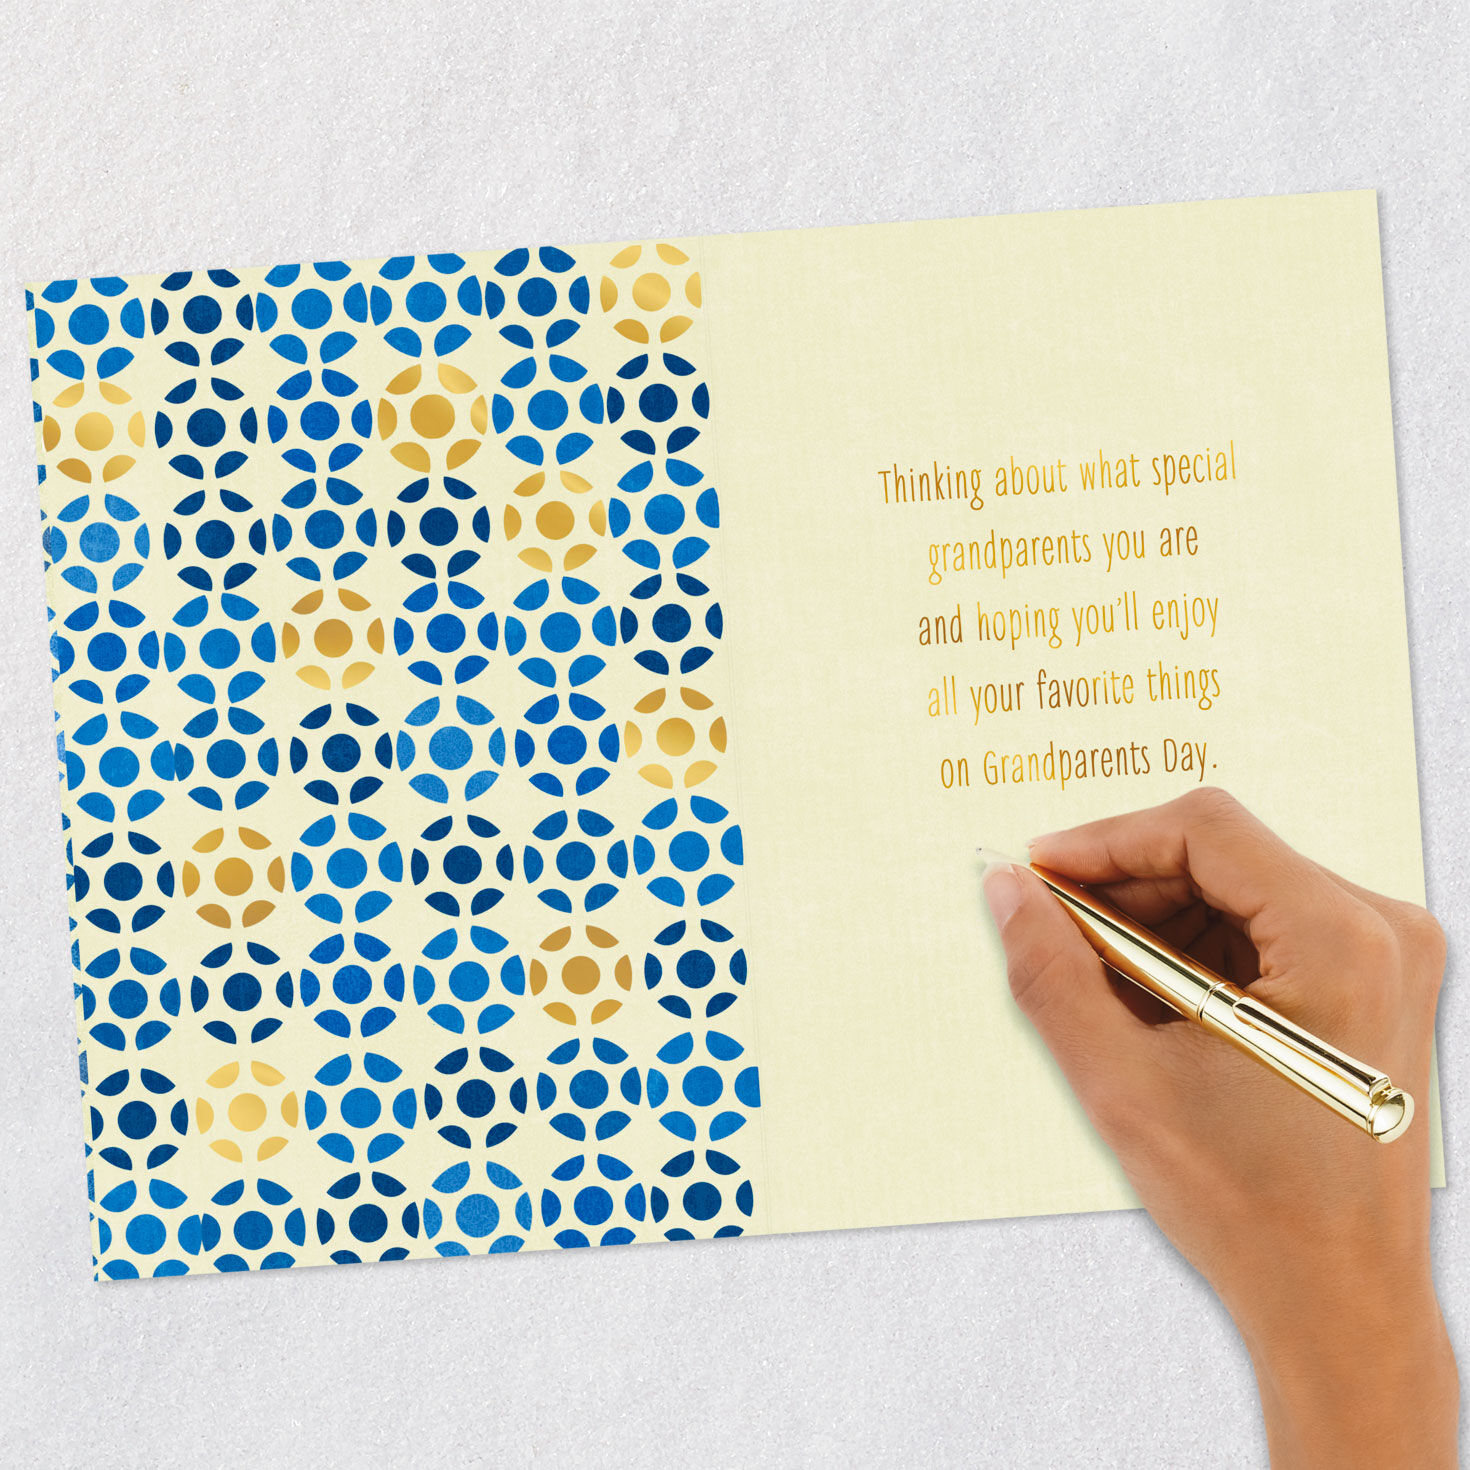 Thinking about what special
grandparents you are
and hoping you'll enjoy
all your favorite things
on Grandparents Day.